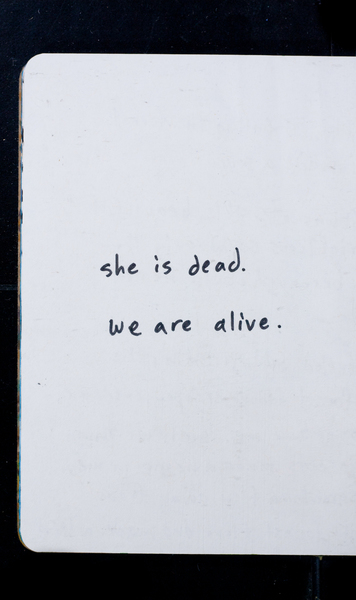 she is dead.
we are alive.